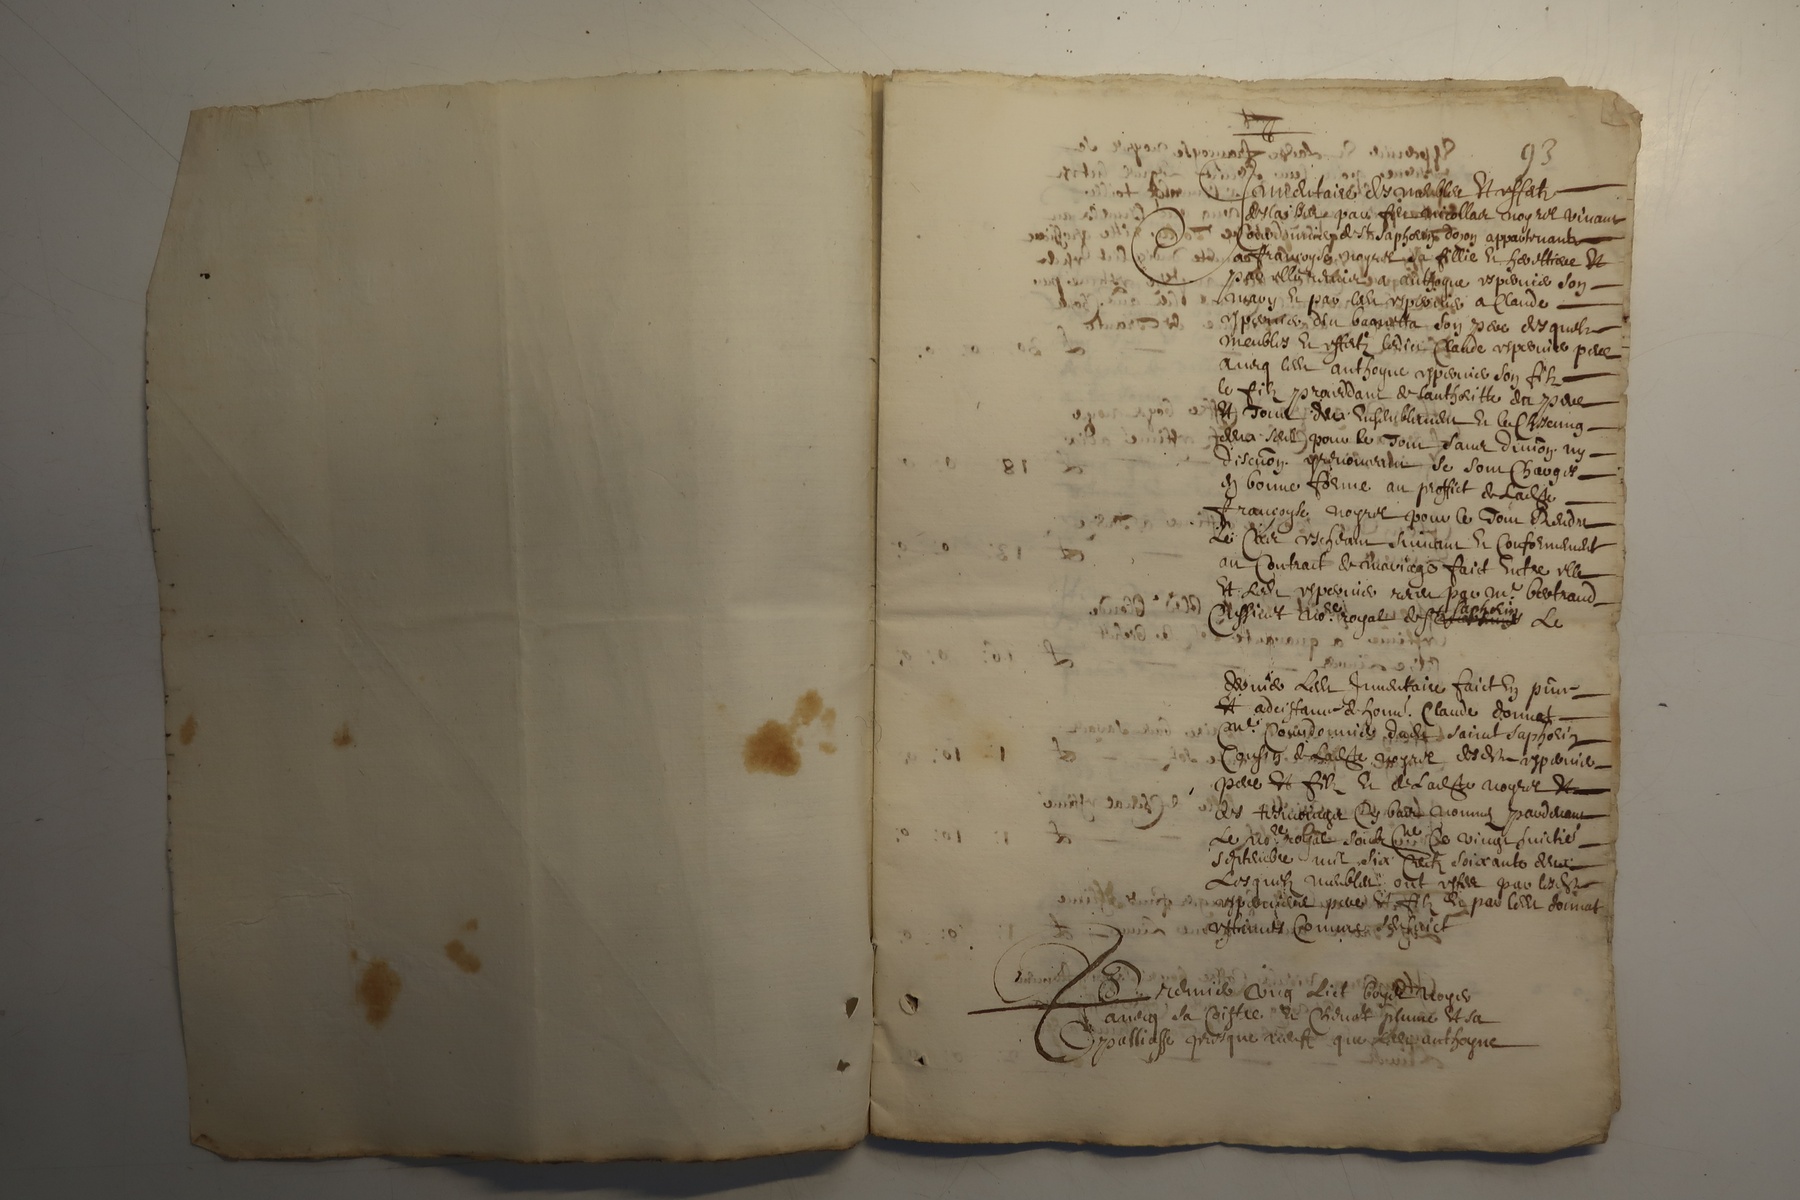 93
Inventaire des meubles et effetz
delaisses par feu nicollas noyret vivant
de St Saphorin dozon appartenants
a francoyse noyret sa fillie et heritiere et
par elle a anthoyne espervier son
mary et par led espervier a Claude
espervier dit son pere desquelz
meubles et effetz ledict Claude espervier pere
avecq led anthoyne espervier son filz
le filz procedant de lauthoritte du pere
et tous deux ensemblement et le Chascung
deux seul pour le tout sans division ny
discution se sont Charges
en bonne forme au proffict de ladte
francoyse noyret pour le tout Rendre
Le Cas escheant suivant et Conformement
au Contract de mariage faict entre elle
et led espervier receu par me bertrand
nore royal de St saphorin Le
led Inventaire faict en pnce
et adcistance de honn. Claude donnat
me dud saint saphorin
Cousin de ladte noyret desdz espervier
pere et filz et de ladte noyret et
des tesmoings En bas nommes pardevant
Le nore royal soubzne Ce vingt huictie
septembre mil six Centz soixante deux
Lesquelz meubles ont estes par lesdz
esperviers pere et filz et par led donnat
estimes Comme sensuict
Premier Ung Lict boys noyer
avecq sa Coistre et plume et sa
palliasse presque neufz que led anthoyne